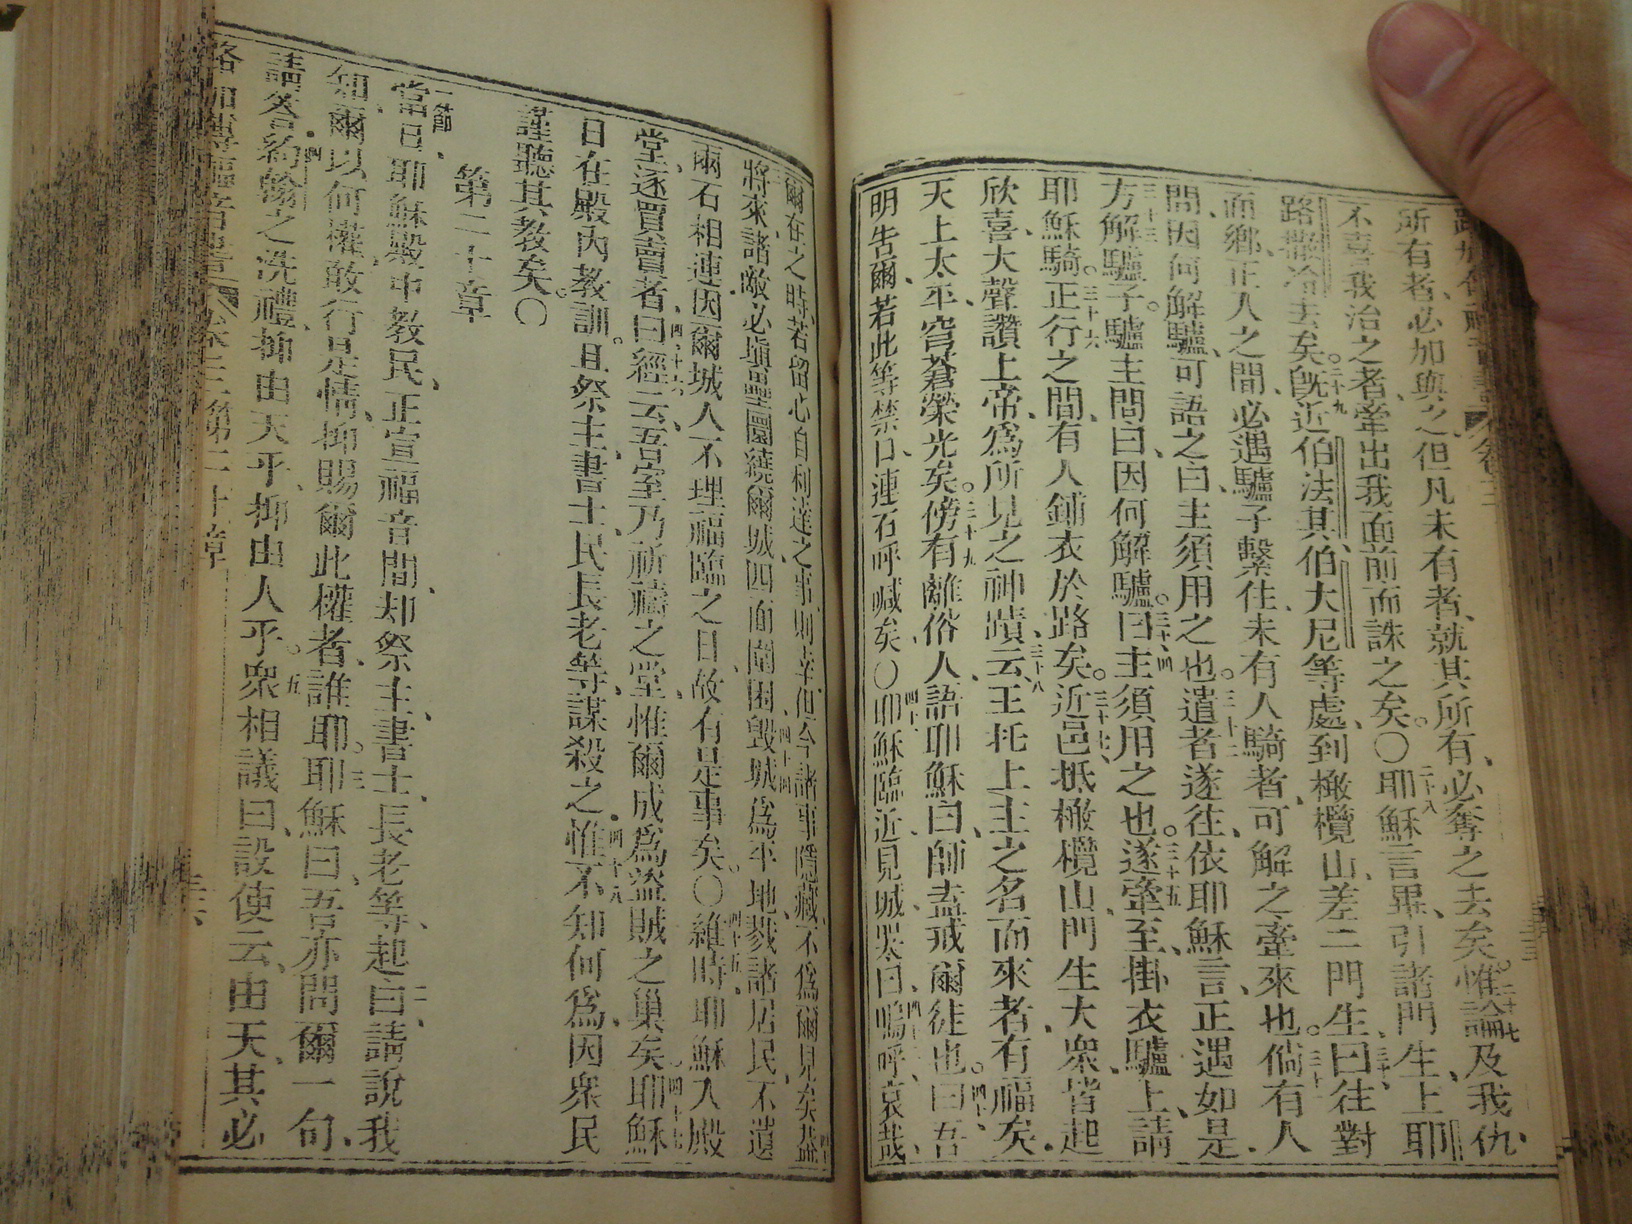 所有者、必加與之、但凡未有者、就其所有、必奪之去矣。二十七惟論及我仇、
不喜我治之者、牽出我面前而誅之矣。〇二十八耶穌言畢、引諸門生、上耶
路撒冷去矣。二十九旣近伯法其、伯大尼等處、到橄欖山、差二門生、三十曰、往對
面鄉、正入之間、必遇驢子繫住、未有人騎者、可解之牽來也。三十一倘有人
問、因何解驢、可語之曰、主須用之也。三十二遣者遂往、依耶穌言、正遇如是。
三十三方解驢子。驢主問曰、因何解驢。三十四曰、主須用之也。三十五遂牽至、掛衣驢上、請
耶穌騎。三十六正行之間、有人鋪衣於路矣。三十七近邑抵橄欖山、門生大衆、皆起
欣喜、大聲讚上帝、爲所見之神蹟、三十八云、王托上主之名而來者有福矣。
天上太平、穹蒼榮光矣。三十九傍有離俗人、語耶穌曰、師盍戒爾徒也。四十曰、吾
明告爾、若此等禁口、連石呼喊矣。〇四十一耶穌臨近見城、哭曰、四十二嗚呼、哀哉、
爾在之時、若留心自利達之事、則幸、但今諸事隱藏、不爲爾見矣。四十三蓋
將來諸敵、必塡壘圜繞爾城、四面圍困、四十四毀城爲平地、戮諸居民、不遺
爾石相連、因爾城人不理福臨之日、故有是事矣。〇四十五維時、耶穌入殿
堂、逐買賣者曰、四十六經云、吾室乃祈禱之堂、惟爾成爲盜賊之巢矣。四十七耶穌
日在殿內教訓。且祭主、書士、民長老等、謀殺之、四十八惟不知何爲、因衆民
謹聽其教矣。〇
第二十章
一節當日、耶穌殿中教民、正宣福音間、却祭主、書士、長老等、起二曰、請說我
知、爾以何權、敢行是情、抑賜爾此權者、誰耶。三耶穌曰、吾亦問爾一句、
請答。四約翰之洗禮、抑由天乎、抑由人乎。五衆相議曰、設使云、由天、其必